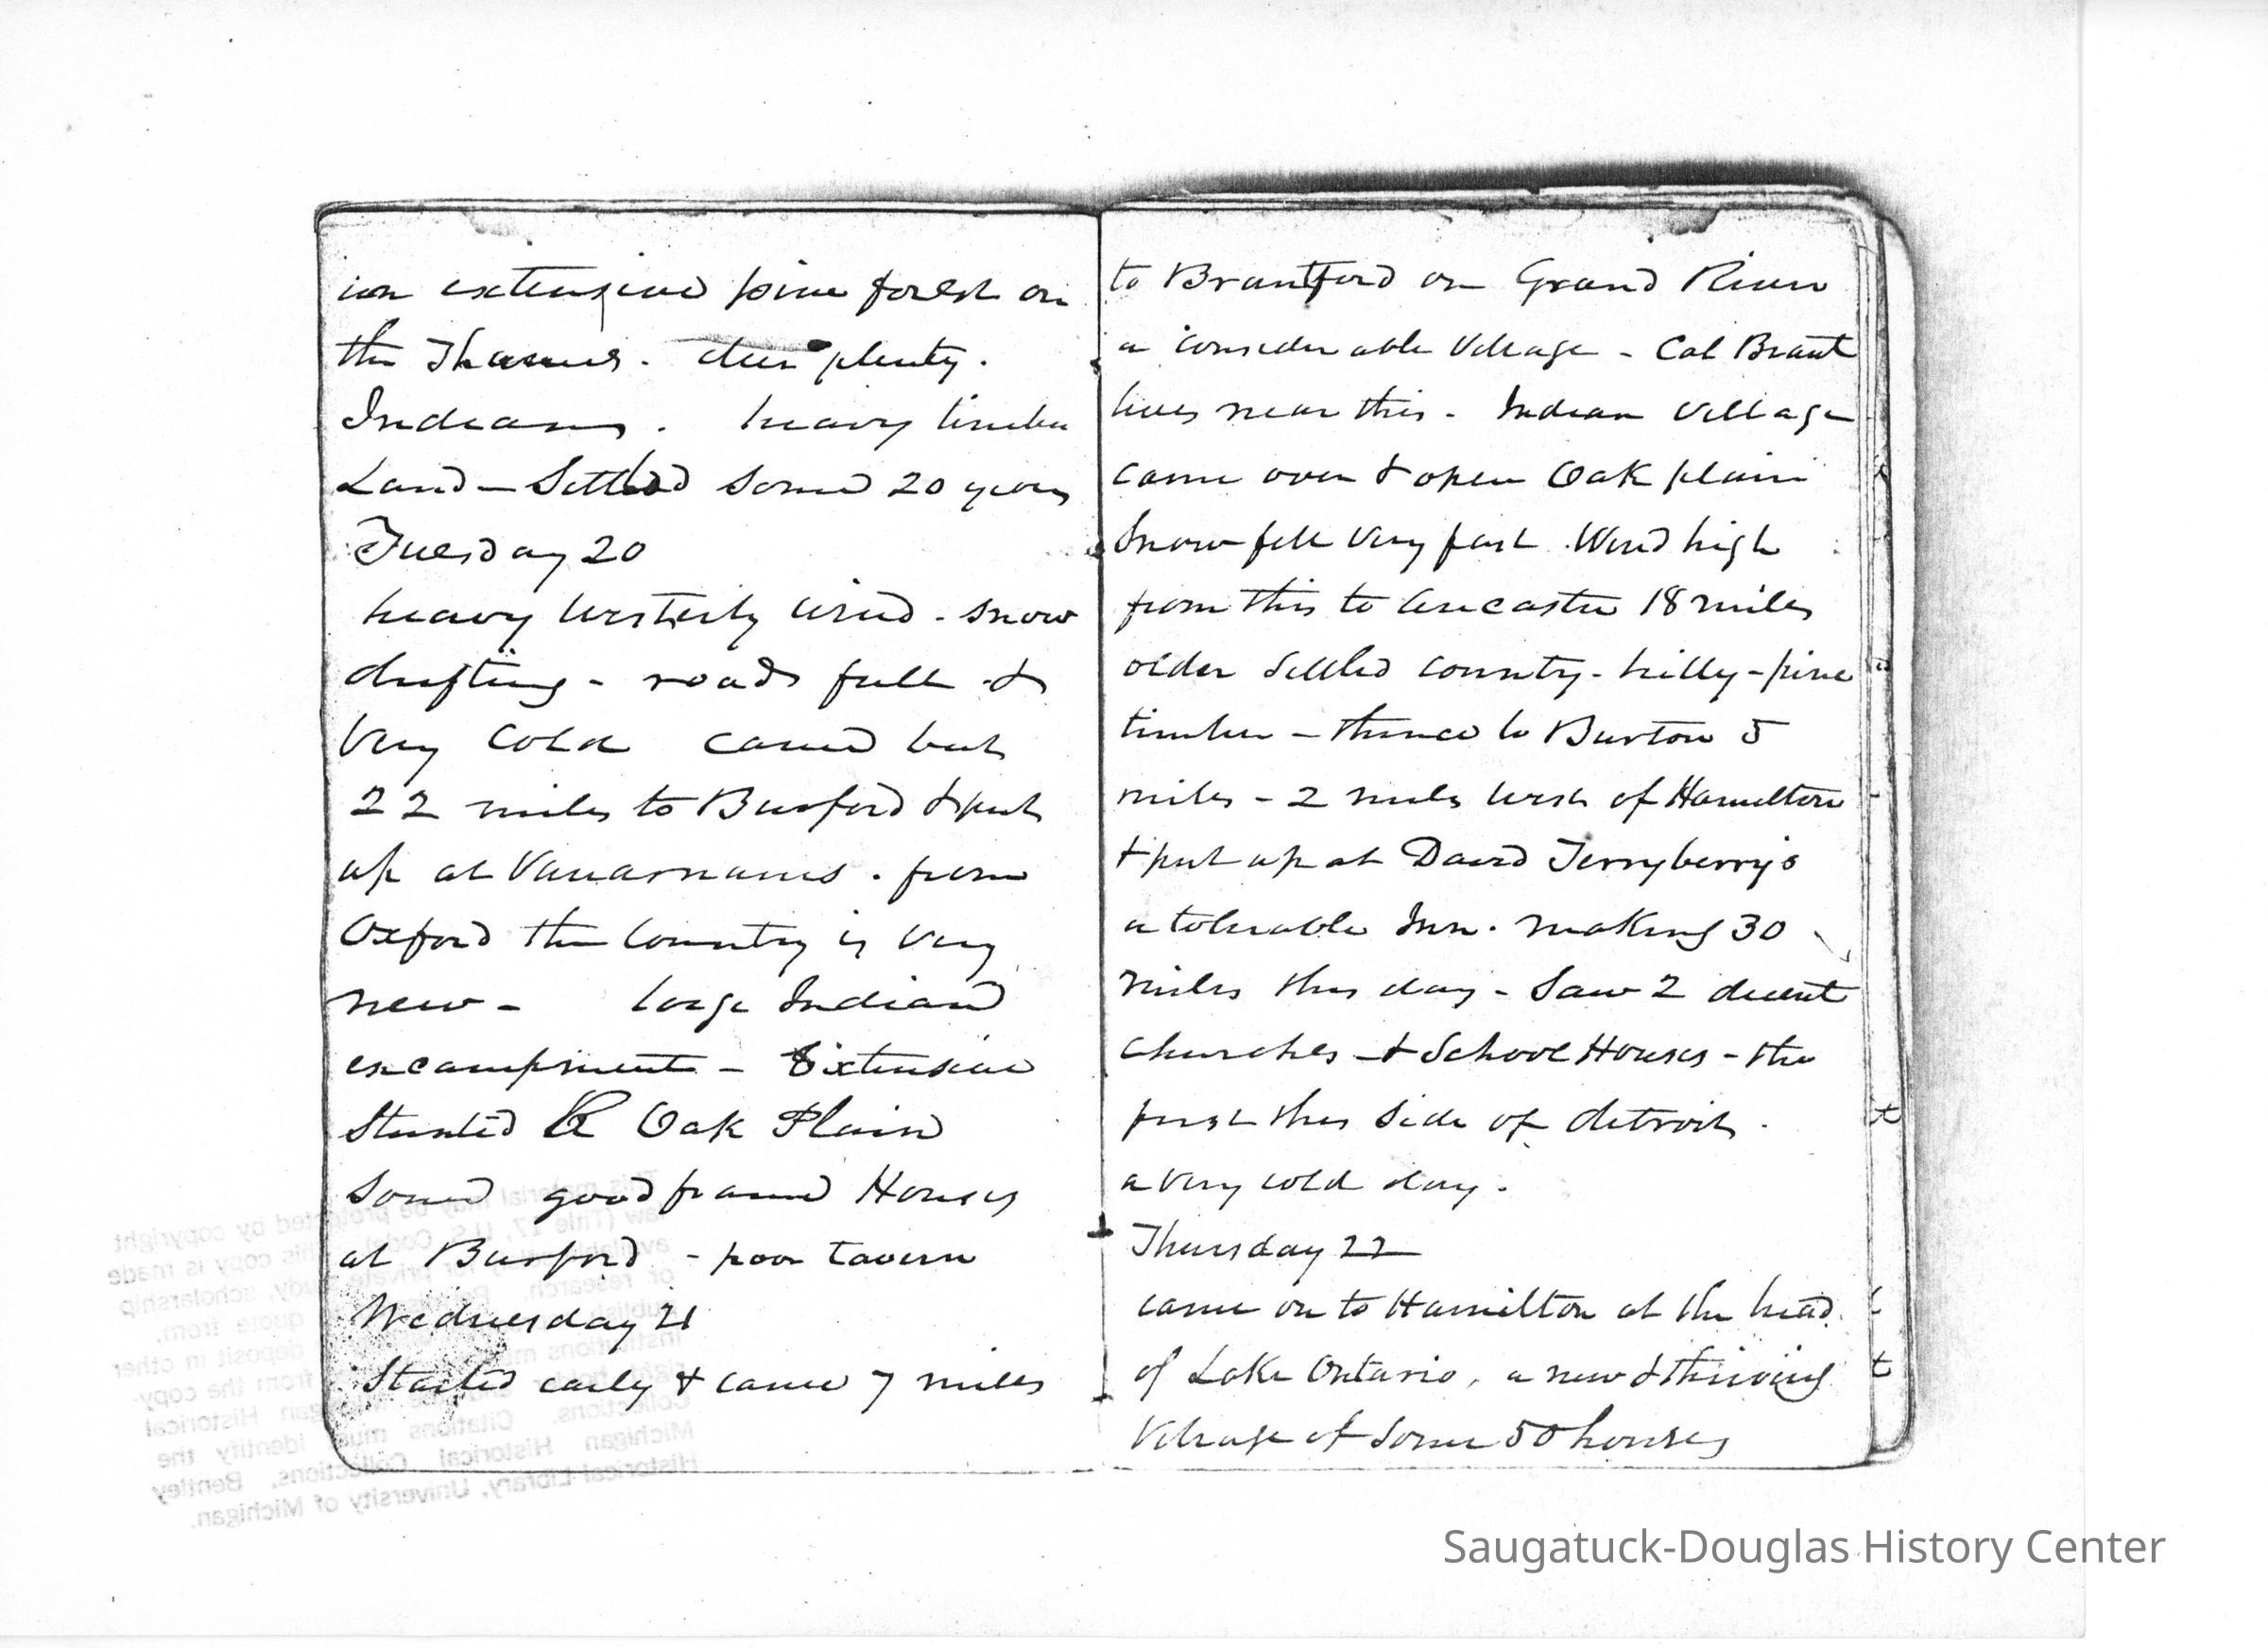 an extensive pine forest on
the Thames. deer plenty.
Indians. heavy timber
Land - Settled some 20 years
Tuesday 20
heavy westerly wind - snow
drifting - roads full &
very cold came but
22 miles to Burford & put
up at Vanarnams. from
Oxford the Country is very
new - large Indian
encampment - Extensive
Stunted Oak Plain
some good framed Houses
at Burford - poor tavern
Wednesday 21
Started early & came 7 miles
to Brantford on Grand River
a considerable Village - Col Brant
lives near this - Indian Village
came over & open Oak plain
Snow fell very fast. Wind high
from this to Ancaster 18 miles
older settled country - hilly - pine
timber - thence to Burton 5
miles - 2 miles west of Hamilton
& put up at David Terryberry's
a tolerable Inn. making 30
miles this day - Saw 2 decent
churches & School Houses - the
first this side of detroit.
a very cold day.
Thursday 22
came on to Hamilton at the head
of Lake Ontario, a new & thriving
Village of some 50 houses
This material may be protected by copyright
law (Title 17, U.S. Code).
Michigan Historical Collections, Bentley
Historical Library, University of Michigan.
Saugatuck-Douglas History Center